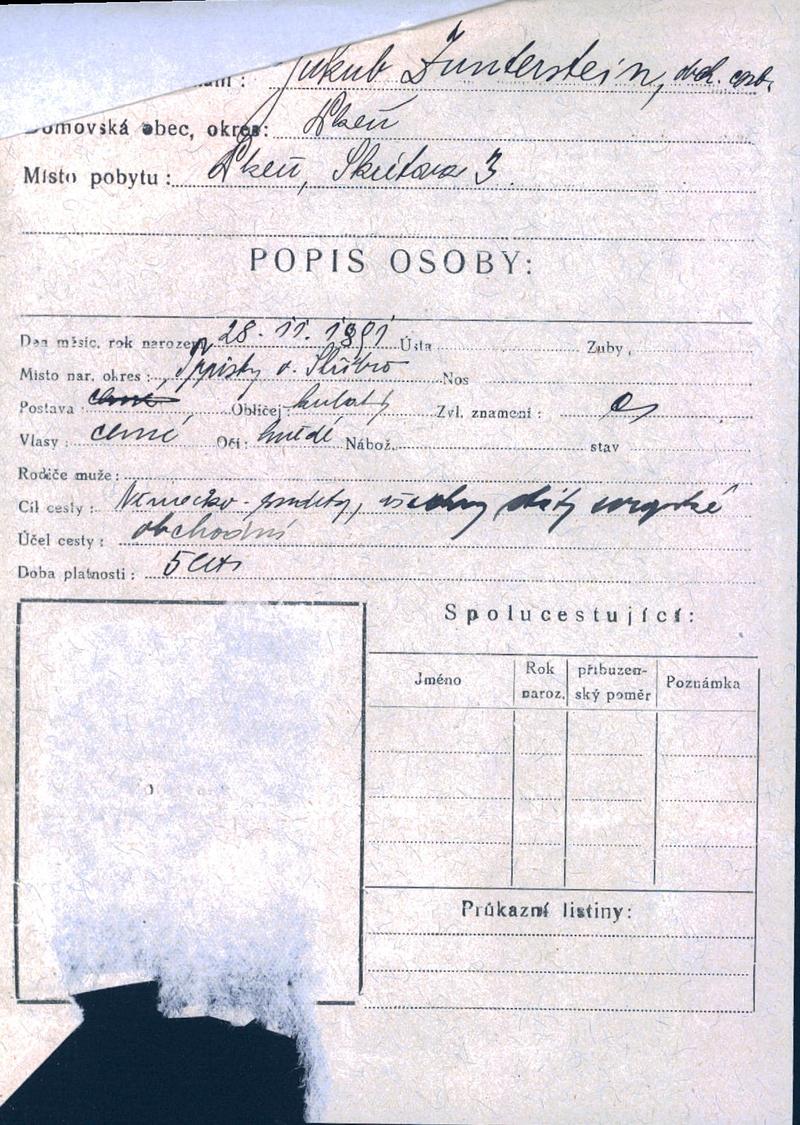 Jakub Zunterstein, obch. cest.
Domovská obec, okres: Plzeň
Místo pobytu: Plzeň, Skrétova 3
POPIS OSOBY:
Den měsíc, rok narození 28. 11. 1891 Ústa Zuby
Místo nar. okres: o. Stříbro Nos
Postava Obličej: kulatý Zvl. znamení: 0
Vlasy: černé Oči: hnědé Nábož. stav
Rodiče muže:
Cíl cesty: Německo - všechny státy evropské
Účel cesty: obchodní
Doba platnosti: 5 let
Spolucestující:
Jméno Rok naroz. příbuzenský poměr Poznámka
Průkazní listiny: